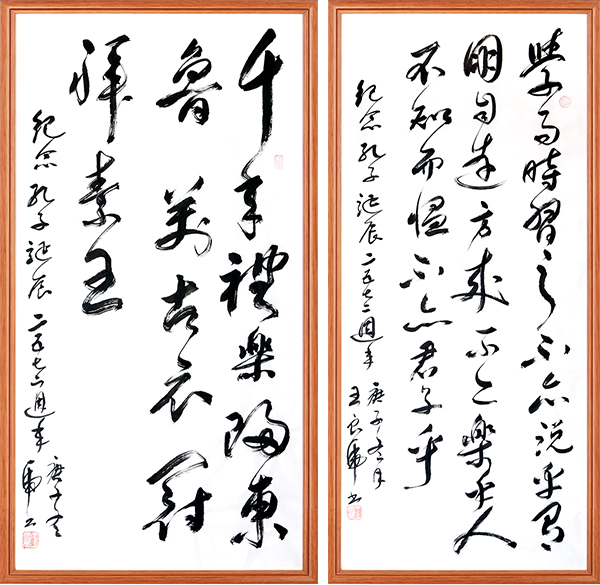 學而時習之不亦說乎有
朋自遠方來不亦樂乎人
不知而慍不亦君子乎
紀念孔子誕辰二五七二週年
庚子冬月
王良虎书
千年禮樂歸東
魯萬古衣冠
拜素王
紀念孔子誕辰二五七二週年
庚子冬
虎书